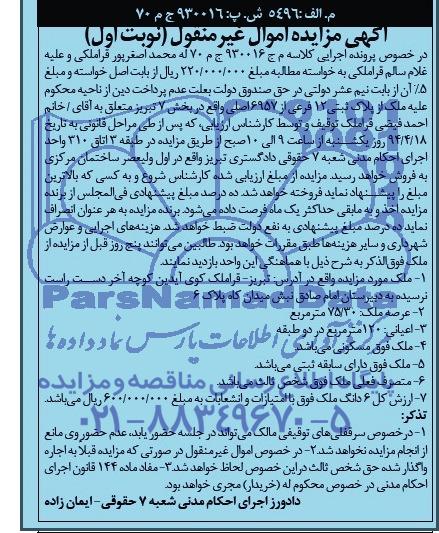 م. الف: ۵۴۹۶ ش. پ: ۹۳۰۰۱۶ ج م ۷۰
آگهی مزایده اموال غیر منقول (نوبت اول)
در خصوص پرونده اجرایی کلاسه م ج ۹۳۰۰۱۶ ج م ۷۰ له محمد اصغرپور قراملکی و علیه
غلام سالم قراملکی به خواسته مطالبه مبلغ ۲۲۰/۰۰۰/۰۰۰ ریال از بابت اصل خواسته و مبلغ
۵٪ آن از بابت نیم عشر دولتی در حق صندوق دولت بعلت عدم پرداخت دین از ناحیه محکوم
علیه ملک از پلاک ثبتی ۱۲ فرعی از ۶۹۵۷ اصلی واقع در بخش ۷ تبریز متعلق به آقای / خانم
احمد فیضی قراملک توقیف و توسط کارشناس ارزیابی، که پس از طی مراحل قانونی به تاریخ
۹۴/۴/۱۸ روز یکشنبه از ساعت ۹ الی ۱۰ صبح از طریق مزایده در طبقه ۳ اتاق ۳۱۰ واحد
اجرای احکام مدنی شعبه ۷ حقوقی دادگستری تبریز واقع در اول ولیعصر ساختمان مرکزی
به فروش خواهد رسید. مزایده از مبلغ ارزیابی شده کارشناس شروع و به کسی که بالاترین
مبلغ را پیشنهاد نماید فروخته خواهد شد. ده درصد مبلغ پیشنهادی فی‌المجلس از برنده
مزایده اخذ و به مابقی حداکثر یک ماه فرصت داده می‌شود. برنده مزایده به هر عنوان انصراف
نماید ده درصد مبلغ پیشنهادی به نفع دولت ضبط خواهد شد. هزینه‌های اجرایی و عوارض
شهرداری و سایر هزینه‌ها طبق مقررات خواهد بود. طالبین می‌توانند پنج روز قبل از مزایده از
ملک فوق‌الذکر به شرح ذیل با هماهنگی این واحد بازدید نمایند.
۱- ملک مورد مزایده واقع در آدرس: تبریز- قراملک کوی آیدین کوچه آخر دست راست
نرسیده به دبیرستان امام صادق نبش میدان کاه پلاک ۶
ParsNamadData
۲- عرصه ملک: ۷۵/۳۰ مترمربع
۳- اعیانی: ۱۲۰ مترمربع در دو طبقه
۴- ملک فوق مسکونی می‌باشد.
۵- ملک فوق دارای سابقه ثبتی می‌باشد.
۶- متصرف فعلی ملک فوق شخص ثالث می‌باشد.
۷- ارزش کل ۶ دانگ ملک فوق با امتیازات و انشعابات به مبلغ ۶۰۰/۰۰۰/۰۰۰ ریال می‌باشد.
پایگاه اطلاع رسانی مناقصه و مزایده
۰۲۱-۸۸۳۴۹۶۷۰-۵
تذکر:
۱- در خصوص سرقفلی‌های توقیفی مالک می‌تواند در جلسه حضور یابد، عدم حضور وی مانع
از انجام مزایده نخواهد شد. ۲- در خصوص اموال غیر منقول در صورتی که مزایده قبلا به اجاره
واگذار شده حق شخص ثالث در این خصوص لحاظ خواهد شد. ۳- مفاد ماده ۱۴۴ قانون اجرای
احکام مدنی در خصوص محکوم له (خریدار) مجری خواهد بود.
دادورز اجرای احکام مدنی شعبه ۷ حقوقی- ایمان زاده